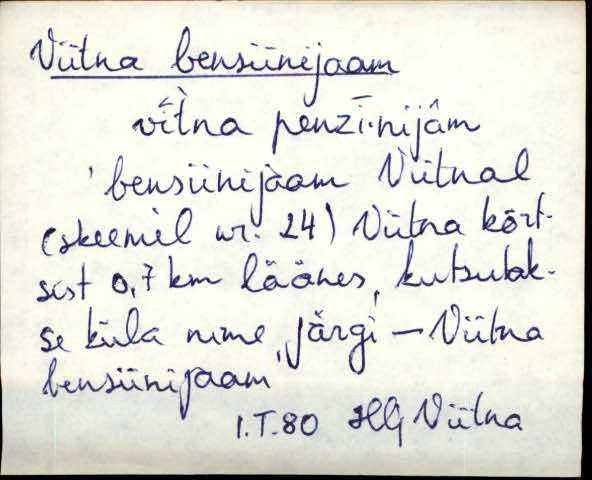 Viitna bensiinijaam
vì̭tna penzī·nijâm
' bensiinijaam Viitnal
(skeemil nr. 24) Viitna kõrt-
sist 0,7 km läänes, kutsutak-
se küla nime järgi — Viitna
bensiinijaam
I.T.80 Viitna